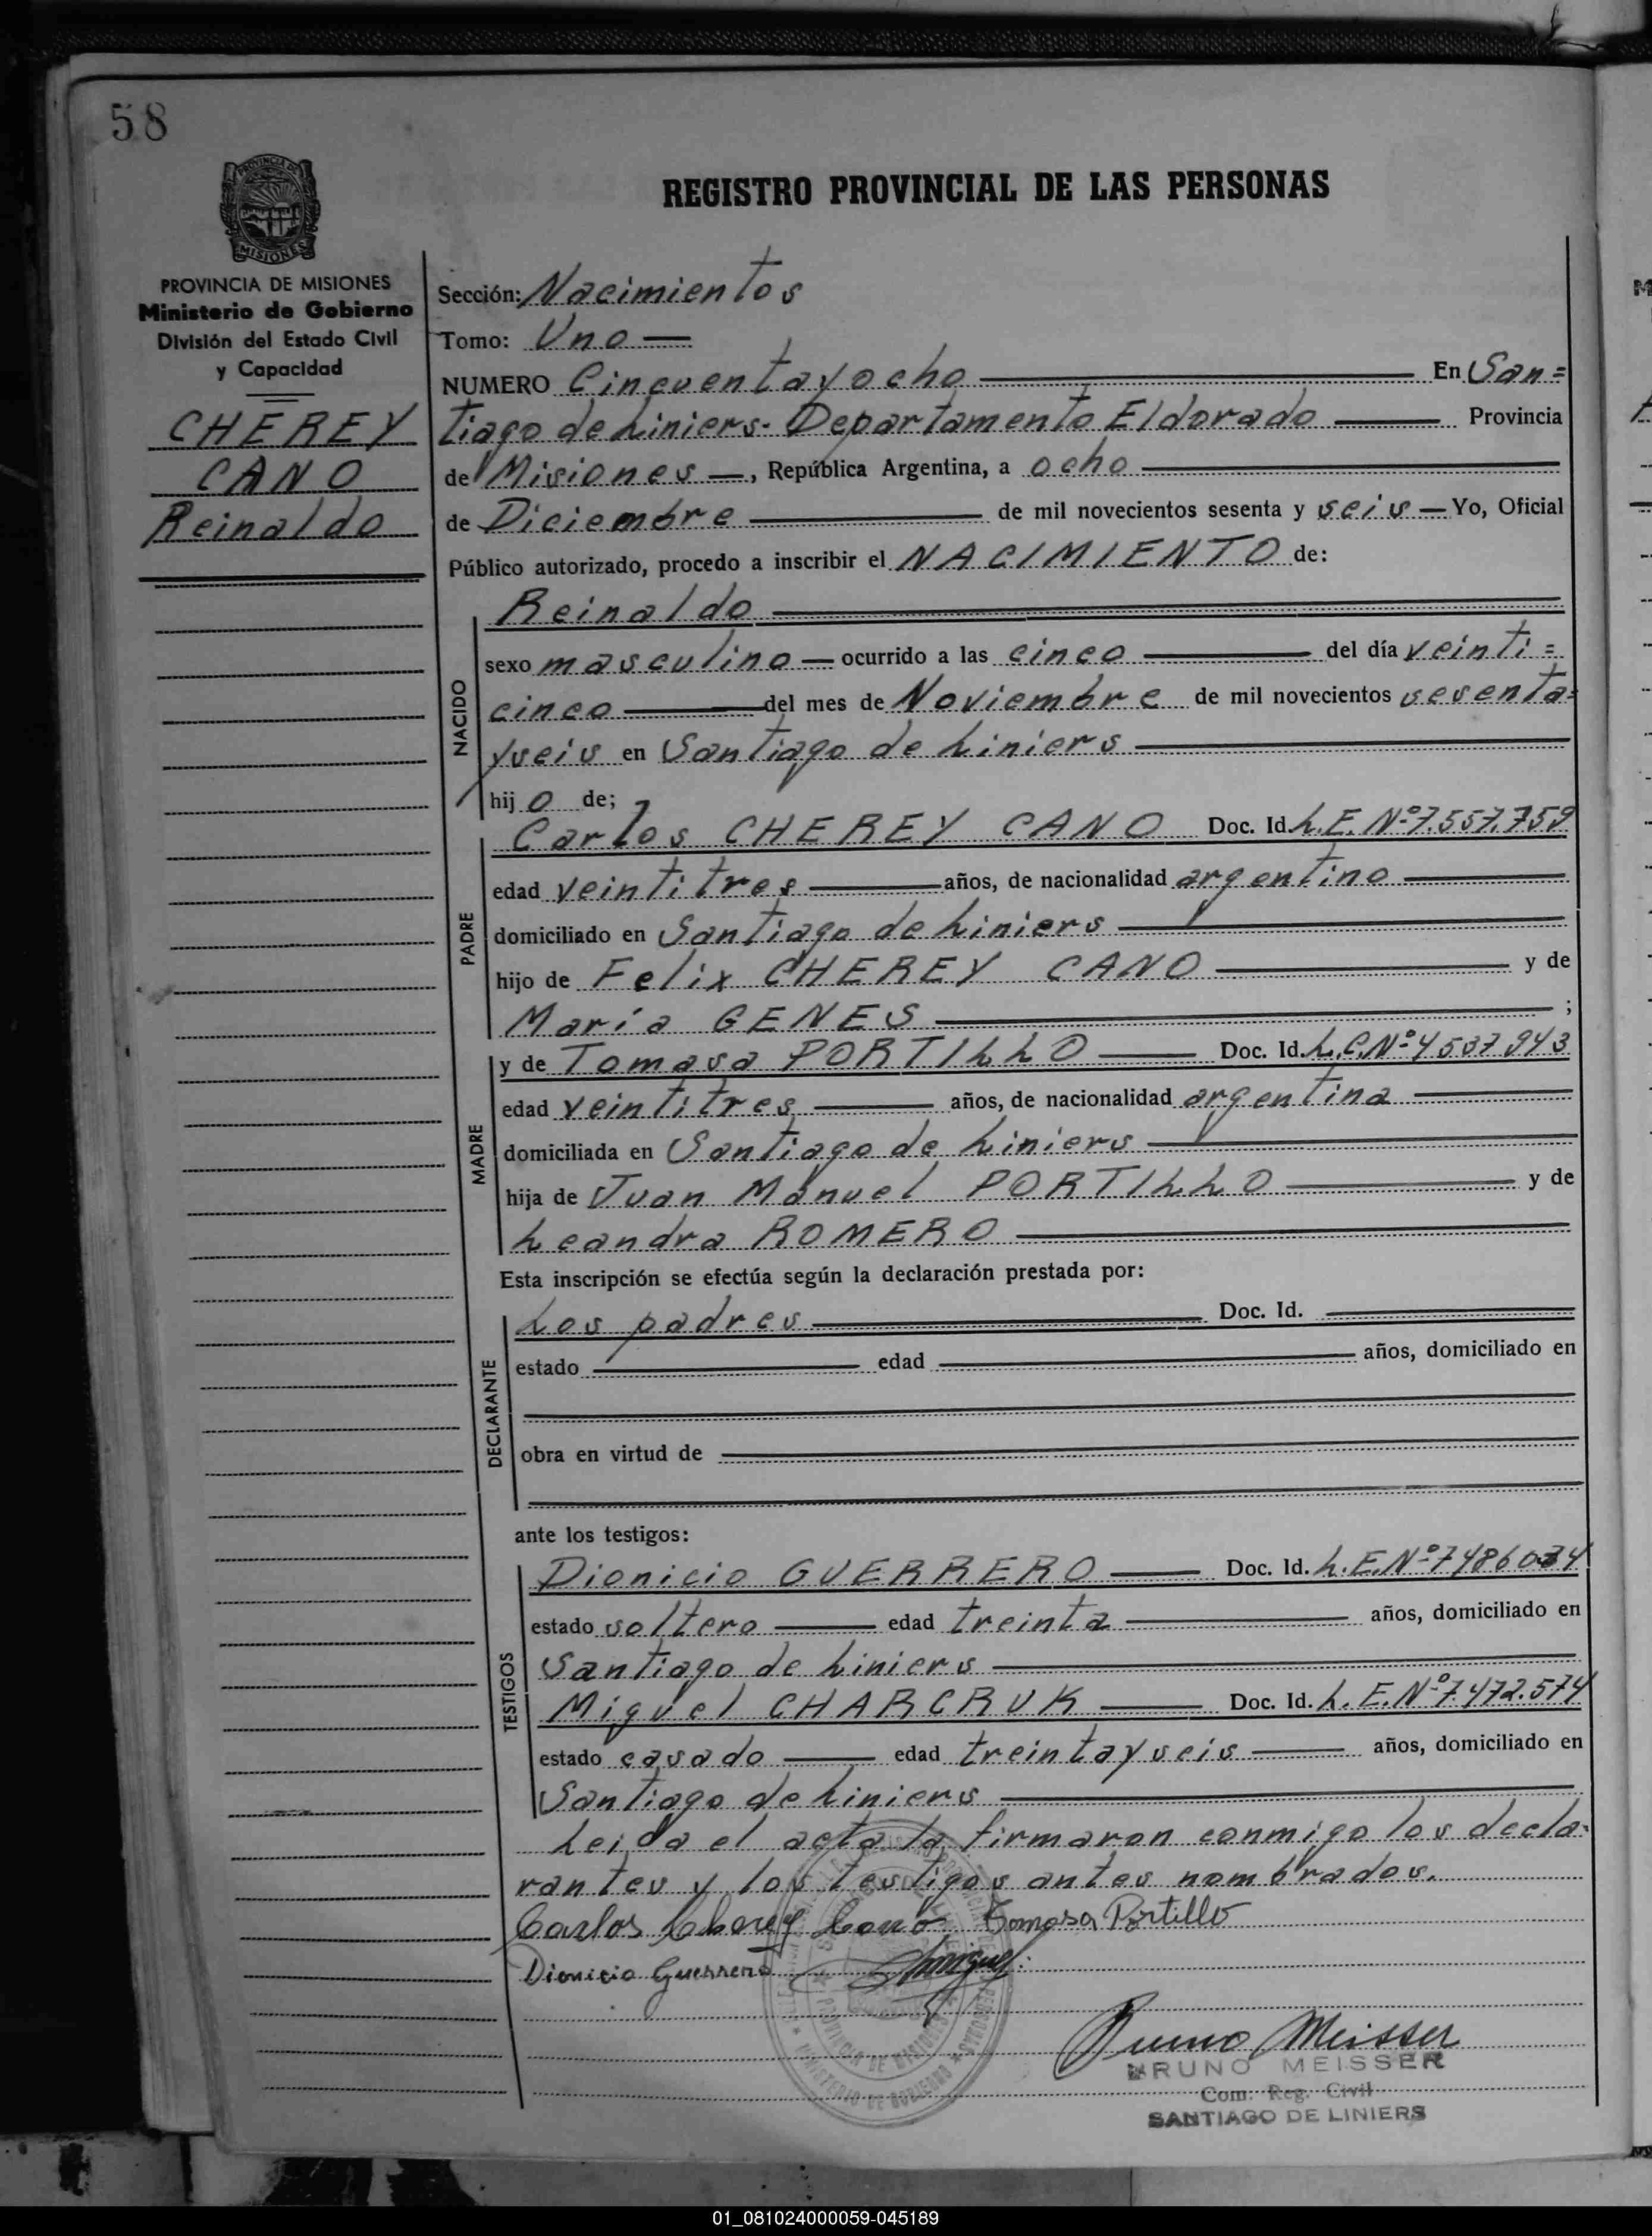 58
PROVINCIA DE
MISIONES
REGISTRO PROVINCIAL DE LAS PERSONAS
PROVINCIA DE MISIONES
Ministerio de Gobierno
División del Estado Civil
y Capacidad
CHEREY
CANO
Reinaldo
Sección: Nacimientos
Tomo: Uno —
NUMERO Cincuentayocho — En San=
tiago de Liniers- Departamento Eldorado — Provincia
de Misiones —, República Argentina, a ocho —
de Diciembre — de mil novecientos sesenta y seis — Yo, Oficial
Público autorizado, procedo a inscribir el NACIMIENTO de:
NACIDO
Reinaldo
sexo masculino — ocurrido a las cinco — del día veinti=
cinco — del mes de Noviembre de mil novecientos sesenta=
yseis en Santiago de Liniers —
hijo de;
PADRE
Carlos CHEREY CANO Doc. Id. L.E. Nº 7.557.759
edad veintitres — años, de nacionalidad argentino —
domiciliado en Santiago de Liniers —
hijo de Felix CHEREY CANO — y de
María GENES — ;
MADRE
y de Tomasa PORTILLO — Doc. Id. L.C. Nº 4537943
edad veintitres — años, de nacionalidad argentina —
domiciliada en Santiago de Liniers —
hija de Juan Manuel PORTILLO — y de
Leandra ROMERO —
Esta inscripción se efectúa según la declaración prestada por:
DECLARANTE
Los padres — Doc. Id. —
estado — edad — años, domiciliado en
obra en virtud de —
ante los testigos:
TESTIGOS
Dionicio GUERRERO — Doc. Id. L.E. Nº 7486034
estado soltero — edad treinta — años, domiciliado en
Santiago de Liniers —
Miguel CHARCRUK — Doc. Id. L.E. Nº 7.472.574
estado casado — edad treintayseis — años, domiciliado en
Santiago de Liniers —
Leida el acta la firmaron conmigo los decla-
rantes y los testigos antes nombrados.
Carlos Cherey Cano Tomasa Portillo
Dionicio Guerrero
PROVINCIA DE MISIONES
MINISTERIO DE GOBIERNO
Bruno Meisser
BRUNO MEISSER
Com. Reg. Civil
SANTIAGO DE LINIERS
01_081024000059-045189